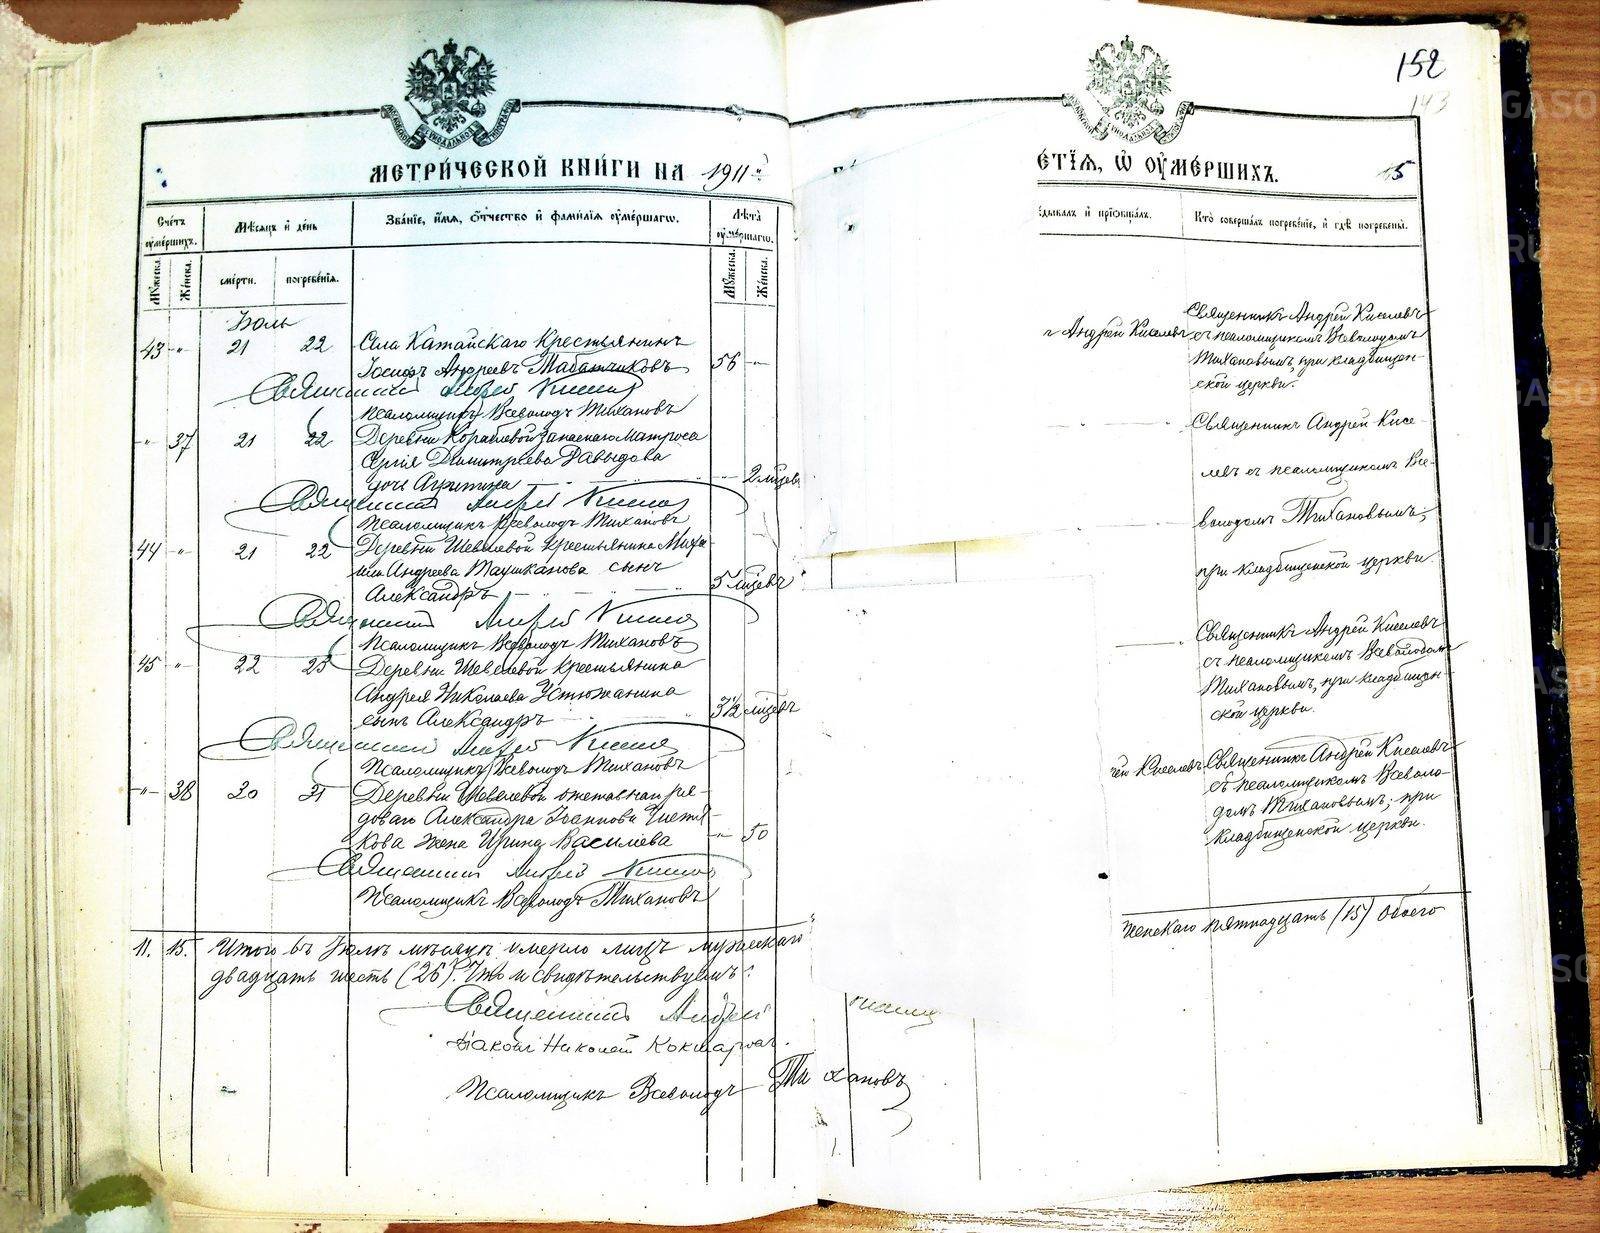 152
143
МЕТРИ́ЧЕСКОЙ КНИ́ГИ НА 1911й
Е́ТІѦ, Ѡ҆ ОУ҆МЕ́РШИХЪ.
15
Сче́тъ оу҆ме́ршихъ.
Мѣ́сѧцъ и҆ де́нь
Зва́нїе, и҆́мѧ, ѻ҆́тчество и҆ фами́лїѧ оу҆ме́ршагѡ.
Лѣ́та оу҆ме́ршагѡ.
Мꙋ́жеска.
Же́нска.
сме́рти.
погребе́нїѧ.
Мꙋ́жеска.
Же́нска.
ѣ́дывалъ и҆ прїѡбща́лъ.
Кто̀ соверша́лъ погребе́нїе, и҆ гдѣ̀ погребены̀.
Іюль
43 -"- 21 22 Села Катайскаго крестьянинъ
Іосифъ Андреевъ Табатчиковъ 56 -"-
Священникъ Андрей Киселевъ
Псаломщикъ Всеволодъ Тихановъ
-"- 37 21 22 Деревни Кораблевой запаснаго матроса
Сергія Димитріева Давыдова
дочь Агрипина -"- 2 мѣсяц
Священникъ Андрей Киселевъ
Псаломщикъ Всеволодъ Тихановъ
44 -"- 21 22 Деревни Шевелевой крестьянина Миха-
ила Андреева Таушканова сынъ
Александръ 5 мѣсяцевъ
Священникъ Андрей Киселевъ
Псаломщикъ Всеволодъ Тихановъ
45 " 22 23 Деревни Шевелевой крестьянина
Андрея Николаева Устюжанина
сынъ Александръ 3½ мѣсяцевъ
Священникъ Андрей Киселевъ
Псаломщикъ Всеволодъ Тихановъ
-"- 38 30 31 Деревни Шевелевой отставнаго ря-
доваго Александра Іоаннова
жена Ирина Васильева -"- 50
Священникъ Андрей Киселевъ
Псаломщикъ Всеволодъ Тихановъ
11. 15. Итого въ Іюлѣ мѣсяцѣ умерло лицъ мужескаго
двадцать шесть (26). Что и свидѣтельствуемъ:
Священникъ Андрей
Діаконъ Николай Кокшаровъ.
Псаломщикъ Всеволодъ Тихановъ
ъ Андрей Киселевъ
Священникъ Андрей Киселевъ
съ псаломщикомъ Всеволодомъ
Тихановымъ, при кладбищен-
ской церкви.
Священникъ Андрей Кисе-
левъ съ псаломщикомъ Все-
володомъ Тихановымъ,
при кладбищенской церкви
Священникъ Андрей Киселевъ
съ псаломщикомъ Всеволодомъ
Тихановымъ, при кладбищен-
ской церкви.
ей Киселевъ
Священникъ Андрей Киселевъ
съ псаломщикомъ Всеволо-
домъ Тихановымъ, при
кладбищенской церкви.
женскаго пятнадцать (15) обоего